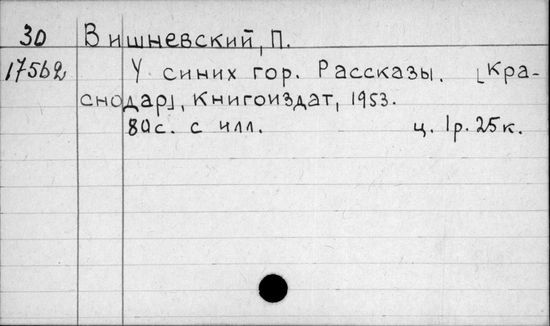 30 Вишневский, П.
17562 У синих гор. Рассказы. [Кра-
снодар], Книгоиздат, 1953.
80с. с илл. ц. 1р. 25к.